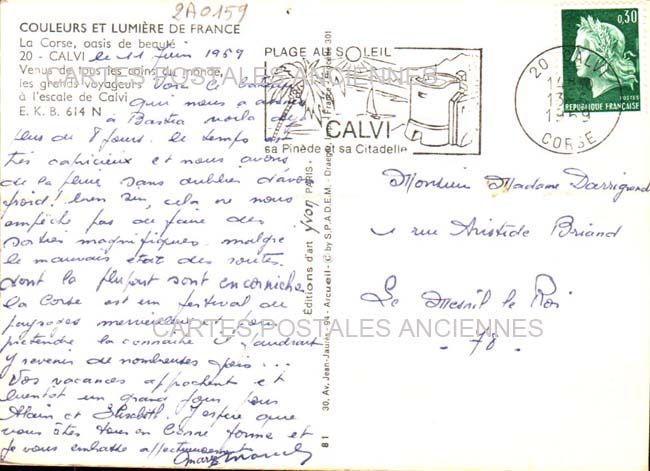 2A0159
COULEURS ET LUMIÈRE DE FRANCE
La Corse, oasis de beauté
20 - CALVI le 11 juin 1969
Venus de tous les coins du monde,
les grands voyageurs Voici le bateau
à l'escale de Calvi qui nous a
E. K. B. 614 N à Bastia voilà
plus de 8 jours. le temps est
très capricieux et nous avons
de la pluie sans oublier
froid! bien sûr, cela ne nous
empêche pas de faire des
sorties magnifiques malgré
le mauvais état des routes
dont la plupart sont en corniche
la Corse est un festival de
paysages merveilleux et pour
prétendre la connaître il faudrait
y revenir de nombreuses fois...
Vos vacances approchent et
bientôt un grand jour pour
Alain et Elisabeth. J'espère que
vous êtes tous en bonne forme et
je vous embrasse affectueusement
PLAGE AU SOLEIL
CALVI
sa Pinède et sa Citadelle
20 CALVI
CORSE
0,30
POSTES
REPUBLIQUE FRANÇAISE
Monsieur Madame Darrigrand
1 rue Aristide Briand
Le Mesnil le Roi
- 78 -
Editions d'art yvon PARIS
30, Av. Jean-Jaurès - 94 - Arcueil - © by S.P.A.D.E.M. - Draeger
81
CARTES POSTALES ANCIENNES
CARTES POSTALES ANCIENNES